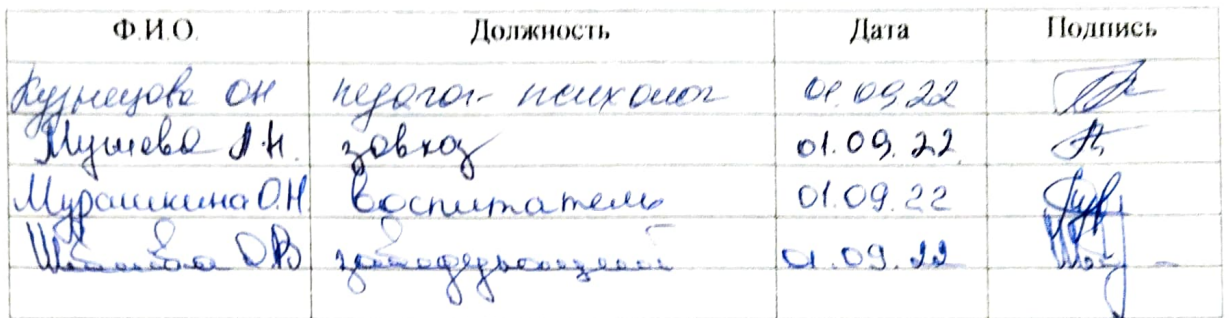 Ф.И.О. Должность Дата Подпись
Кузнецова ОН педагог-психолог 01.09.22
завхоз 01.09.22
Мурашкина О.Н воспитатель 01.09.22
О.В заведующий 01.09.22